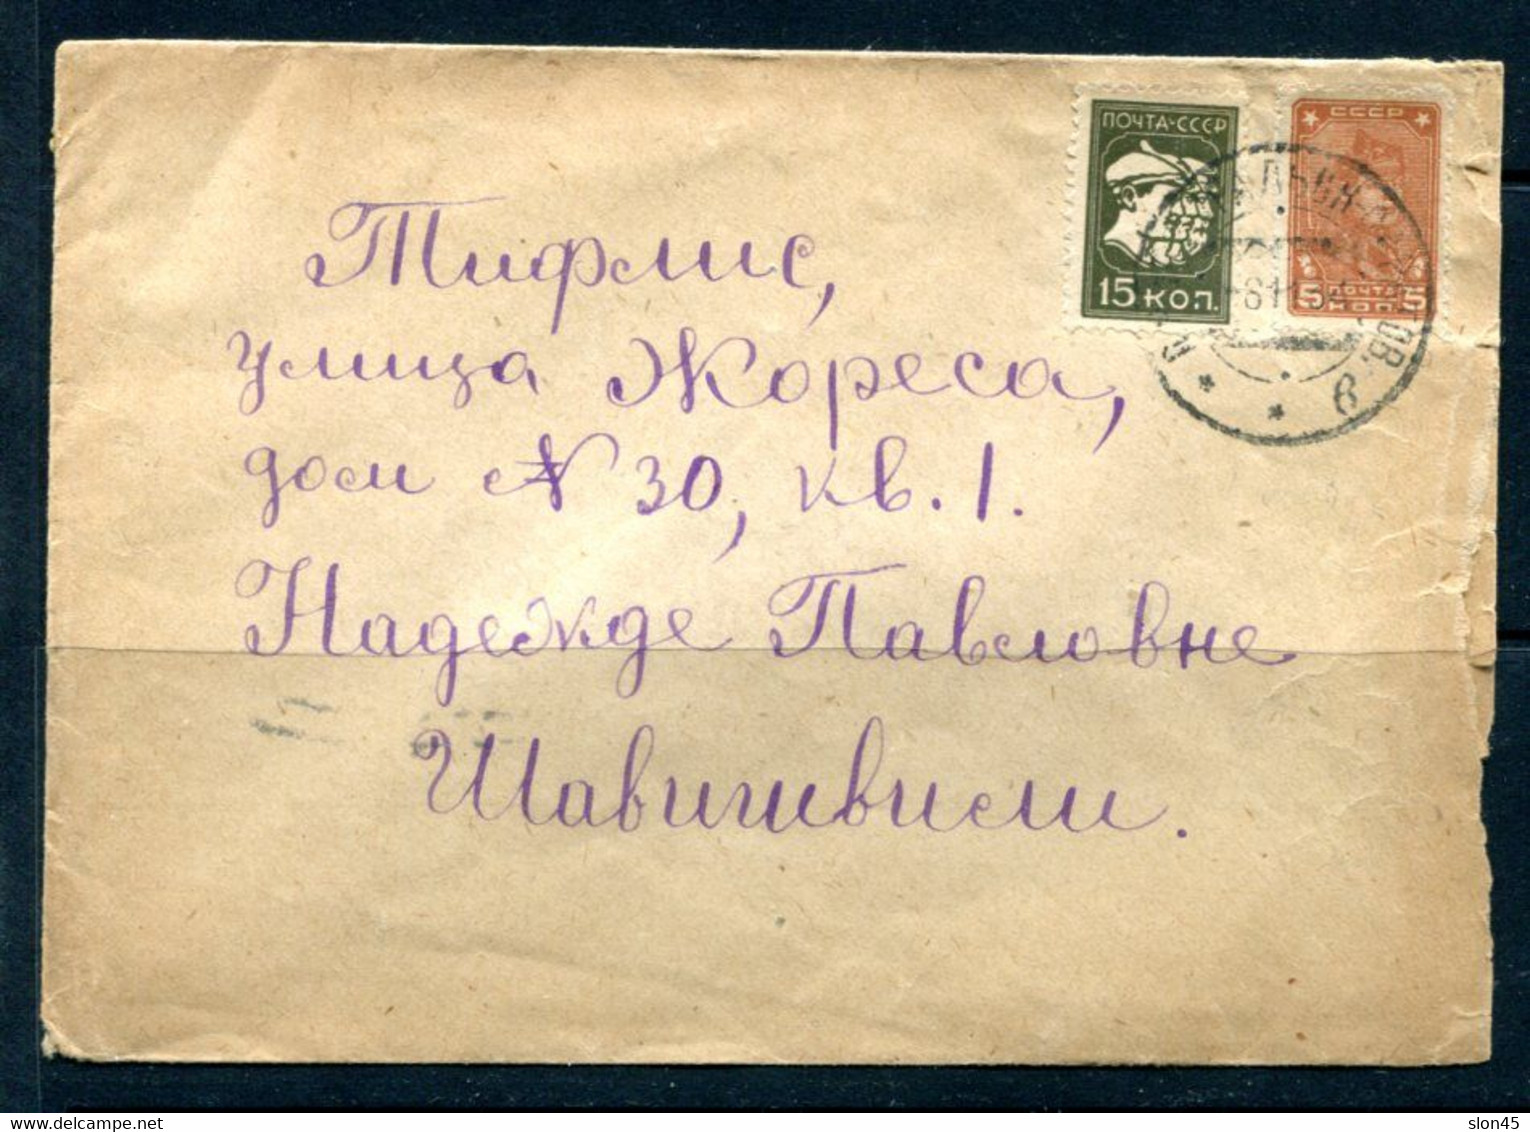 ПОЧТА-СССР
15 КОП.
СССР
5 ПОЧТА 5
КОП.
Тифлис,
улица Жореса,
дом № 30, кв. 1.
Надежде Павловне
Шавишвили.
slon45